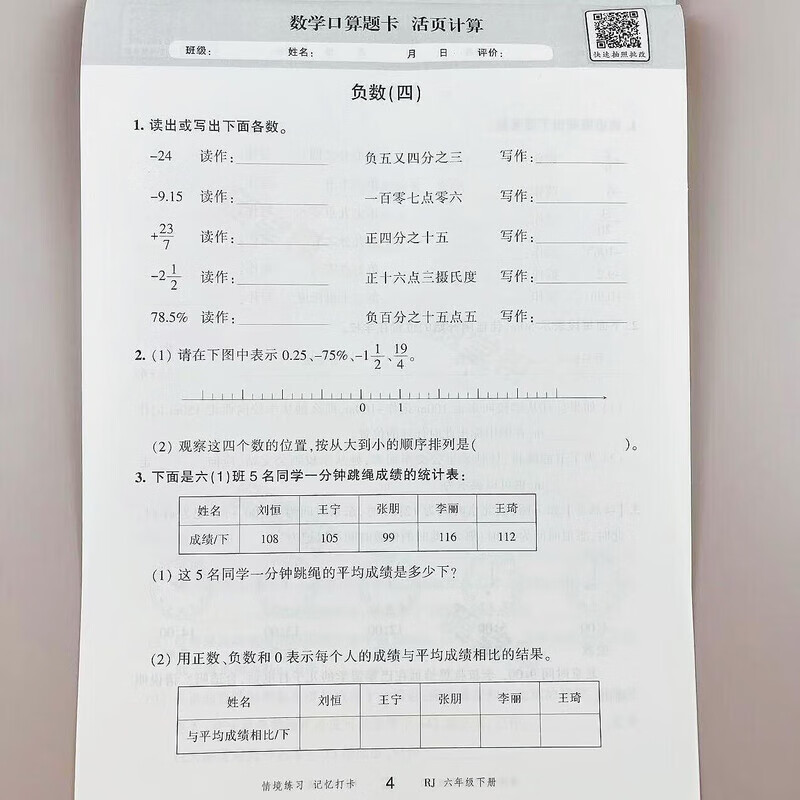 数学口算题卡 活页计算
班级: 姓名: 月 日 评价:
快速拍照批改
负数(四)
1. 读出或写出下面各数。
-24 读作: 负五又四分之三 写作:
-9.15 读作: 一百零七点零六 写作:
+23/7 读作: 正四分之十五 写作:
-2 1/2 读作: 正十六点三摄氏度 写作:
78.5% 读作: 负百分之十五点五 写作:
2. (1) 请在下图中表示 0.25、-75%、-1 1/2、19/4。
0 1
(2) 观察这四个数的位置,按从大到小的顺序排列是( )。
3. 下面是六(1)班 5 名同学一分钟跳绳成绩的统计表:
姓名 刘恒 王宁 张朋 李丽 王琦
成绩/下 108 105 99 116 112
(1) 这 5 名同学一分钟跳绳的平均成绩是多少下?
(2) 用正数、负数和 0 表示每个人的成绩与平均成绩相比的结果。
姓名 刘恒 王宁 张朋 李丽 王琦
与平均成绩相比/下
情境练习 记忆打卡 4 RJ 六年级下册